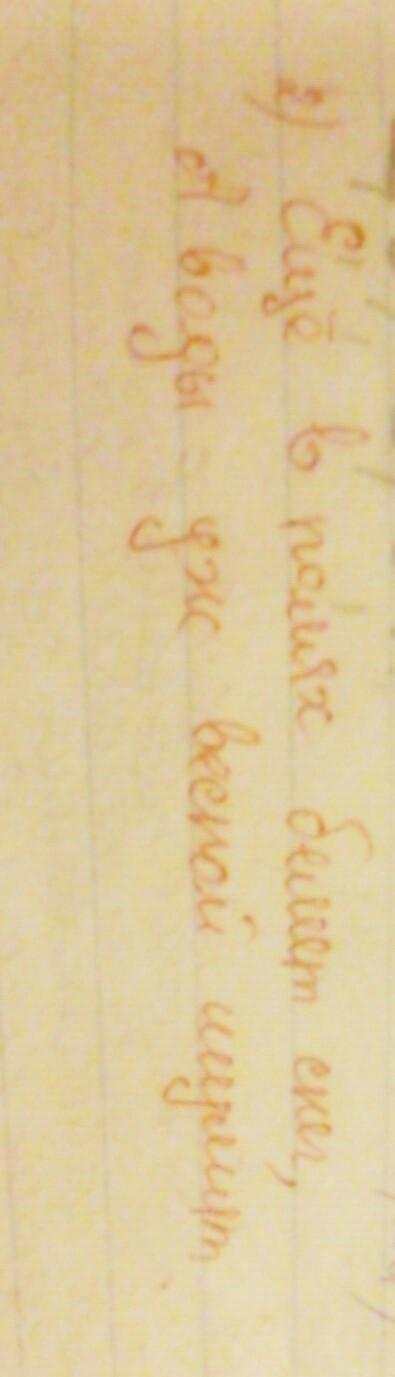 2) Ещё в полях белеет снег,
А воды уж весной шумят